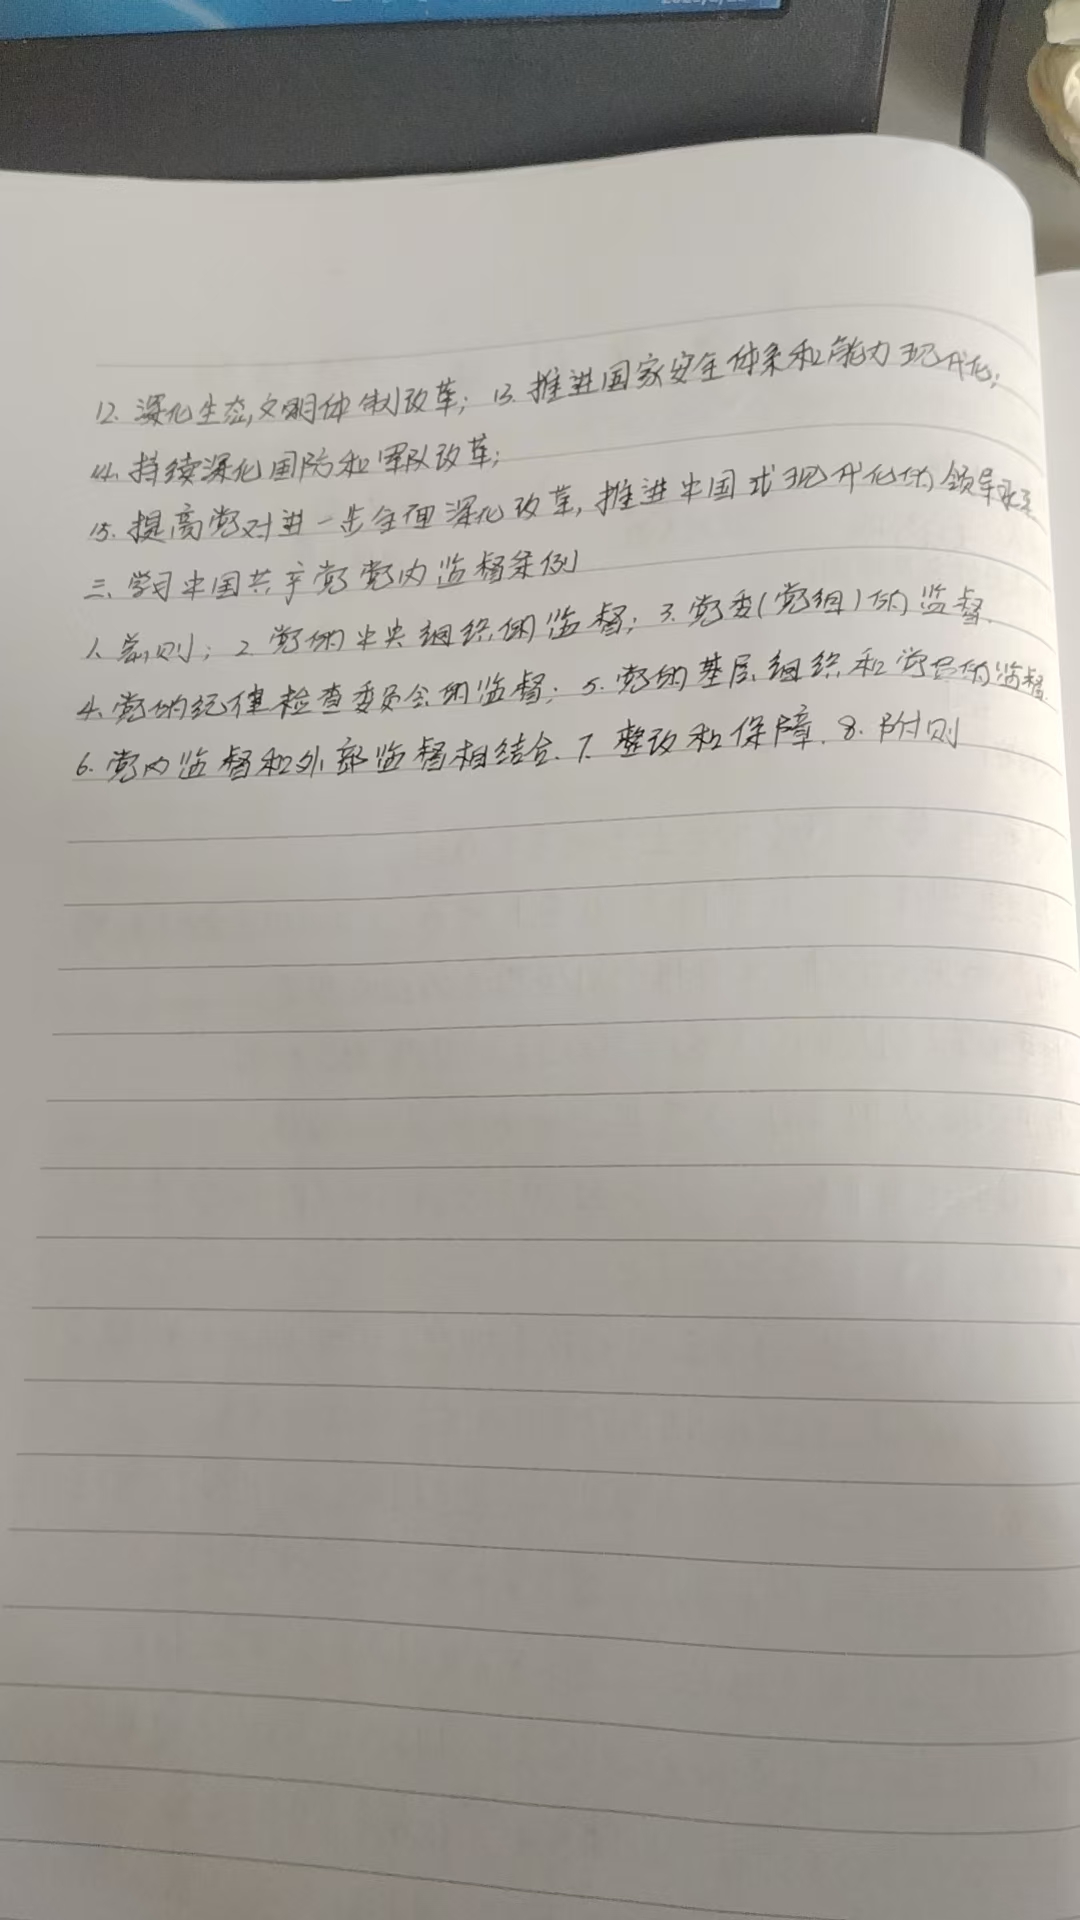 12. 深化生态文明体制改革; 13. 推进国家安全体系和能力现代化;
14. 持续深化国防和军队改革;
15. 提高党对进一步全面深化改革, 推进中国式现代化的领导水平
三. 学习中国共产党党内监督条例
1. 总则; 2. 党的中央组织的监督; 3. 党委(党组)的监督.
4. 党的纪律检查委员会的监督; 5. 党的基层组织和党员的监督.
6. 党内监督和外部监督相结合. 7. 整改和保障. 8. 附则